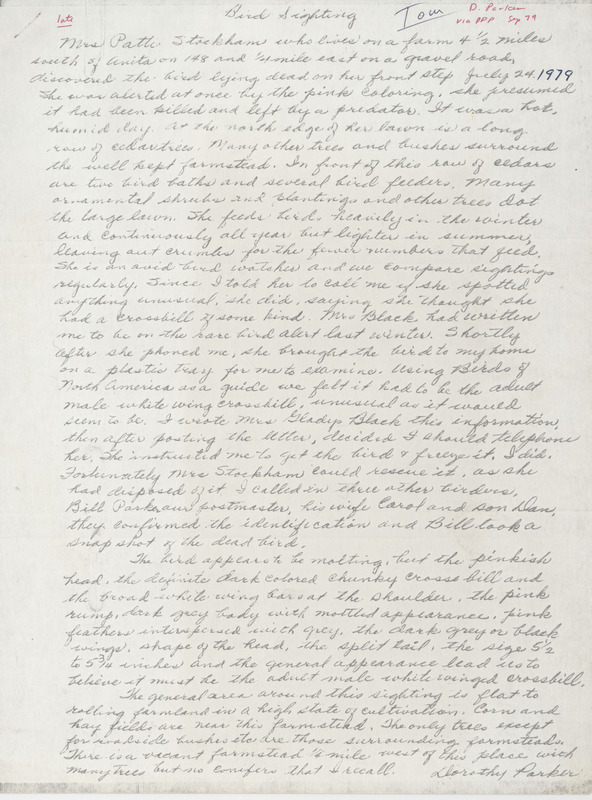 Bird Sighting
Tom
D. Parker
via DPP Sep 79
late
Mrs Patti Stockham who lives on a farm 4 1/2 miles
south of Anita on 148 and 1/4 mile east on a gravel road,
discovered the bird lying dead on her front step July 24, 1979
She was alerted at once by the pink coloring. she presumed
it had been killed and left by a predator. It was a hot,
humid day. At the north edge of her lawn is a long
row of cedar trees. Many other trees and bushes surround
the well kept farmstead. In front of this row of cedars
are two bird baths and several bird feeders. Many
ornamental shrubs and plantings and other trees dot
the large lawn. She feeds birds heavily in the winter
and continuously all year but lighter in summer,
leaving out crumbs for the fewer numbers that feed.
She is an avid bird watcher and we compare sightings
regularly. Since I told her to call me if she spotted
anything unusual, she did, saying she thought she
had a crossbill of some kind. Mrs Black had written
me to be on the rare bird alert last winter. Shortly
after she phoned me, she brought the bird to my home
on a plastic tray for me to examine. Using Birds of
North America as a guide we felt it had to be the adult
male white wing crossbill, unusual as it would
seem to be. I wrote Mrs Gladys Black this information,
then after posting the letter, decided I should telephone
her. She instructed me to get the bird & freeze it. I did.
Fortunately Mrs Stockham could rescue it, as she
had disposed of it. I called in three other birders,
Bill Parker our postmaster, his wife Carol and son Dan,
they confirmed the identification and Bill took a
snap shot of the dead bird.
The bird appears to be molting, but the pinkish
head, the definite dark colored chunky cross bill and
the broad white wing bars at the shoulder, the pink
rump, dark grey body with mottled appearance, pink
feathers interspersed with grey, the dark grey or black
wings, shape of the head, the split tail, the size 5 1/2
to 5 3/4 inches and the general appearance lead us to
believe it must be the adult male white winged crossbill.
The general area around this sighting is flat to
rolling farmland in a high state of cultivation. Corn and
hay fields are near this farmstead. The only trees except
for roadside bushes etc are those surrounding farmsteads.
There is a vacant farmstead 1/2 mile west of this place with
many trees but no conifers that I recall. Dorothy Parker